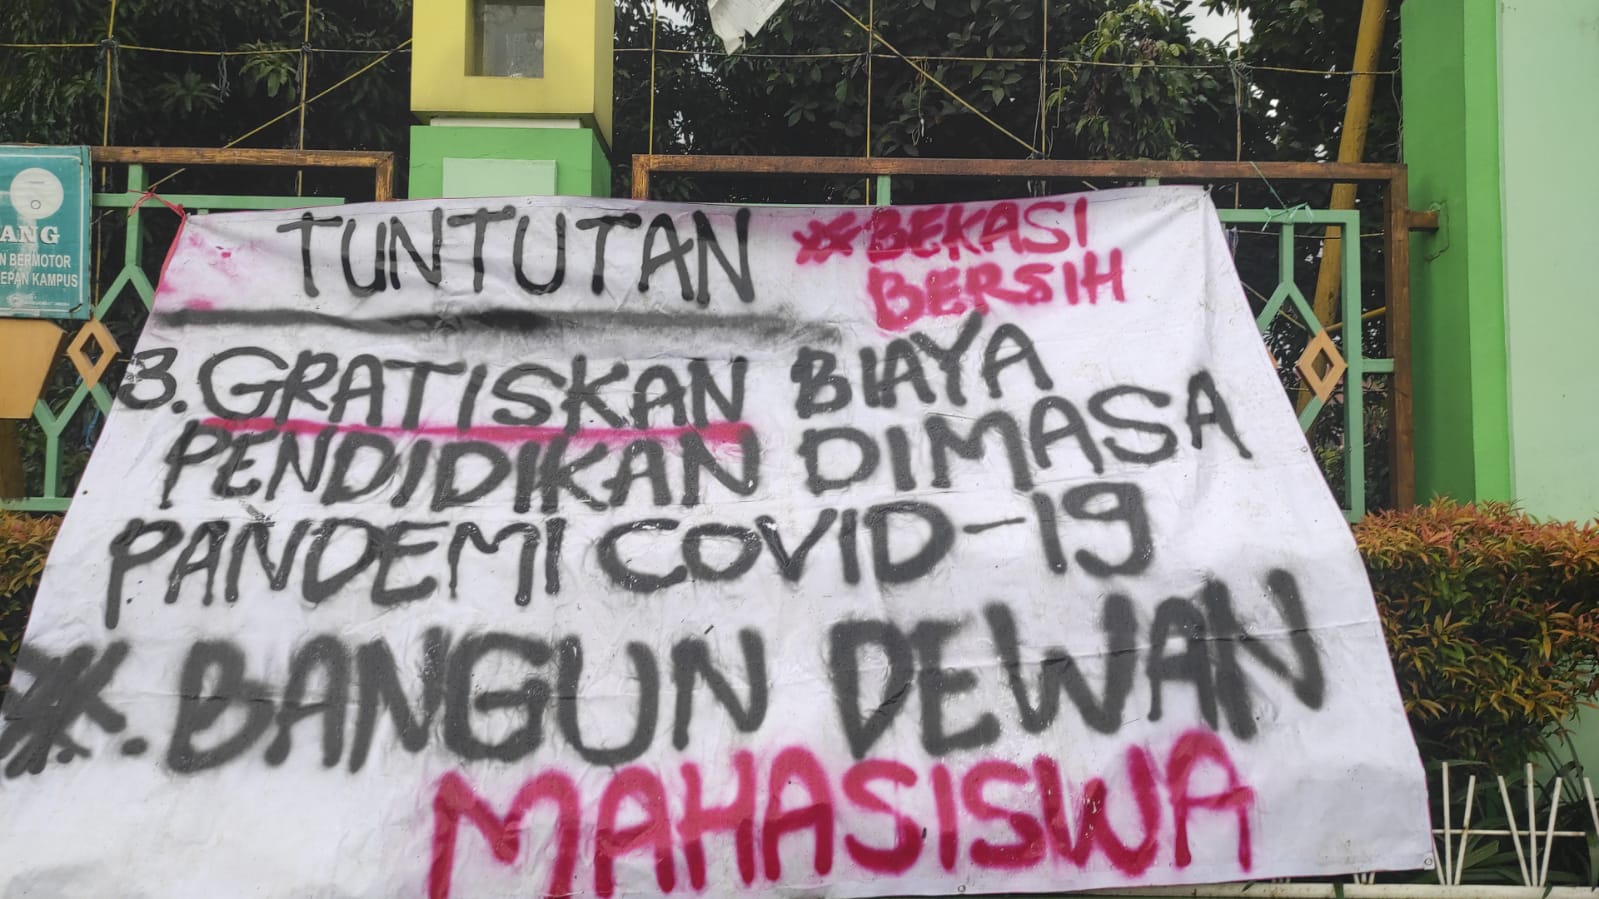 TUNTUTAN
BEKASI
BERSIH
3. GRATISKAN BIAYA
PENDIDIKAN DIMASA
PANDEMI COVID-19
BANGUN DEWAN
MAHASISWA
ANG
N BERMOTOR
EPAN KAMPUS